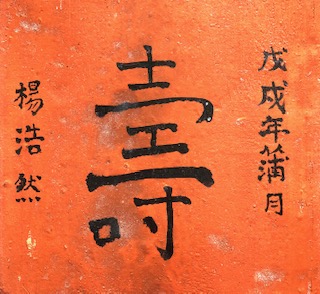 戊戌年蒲月
壽
楊浩然